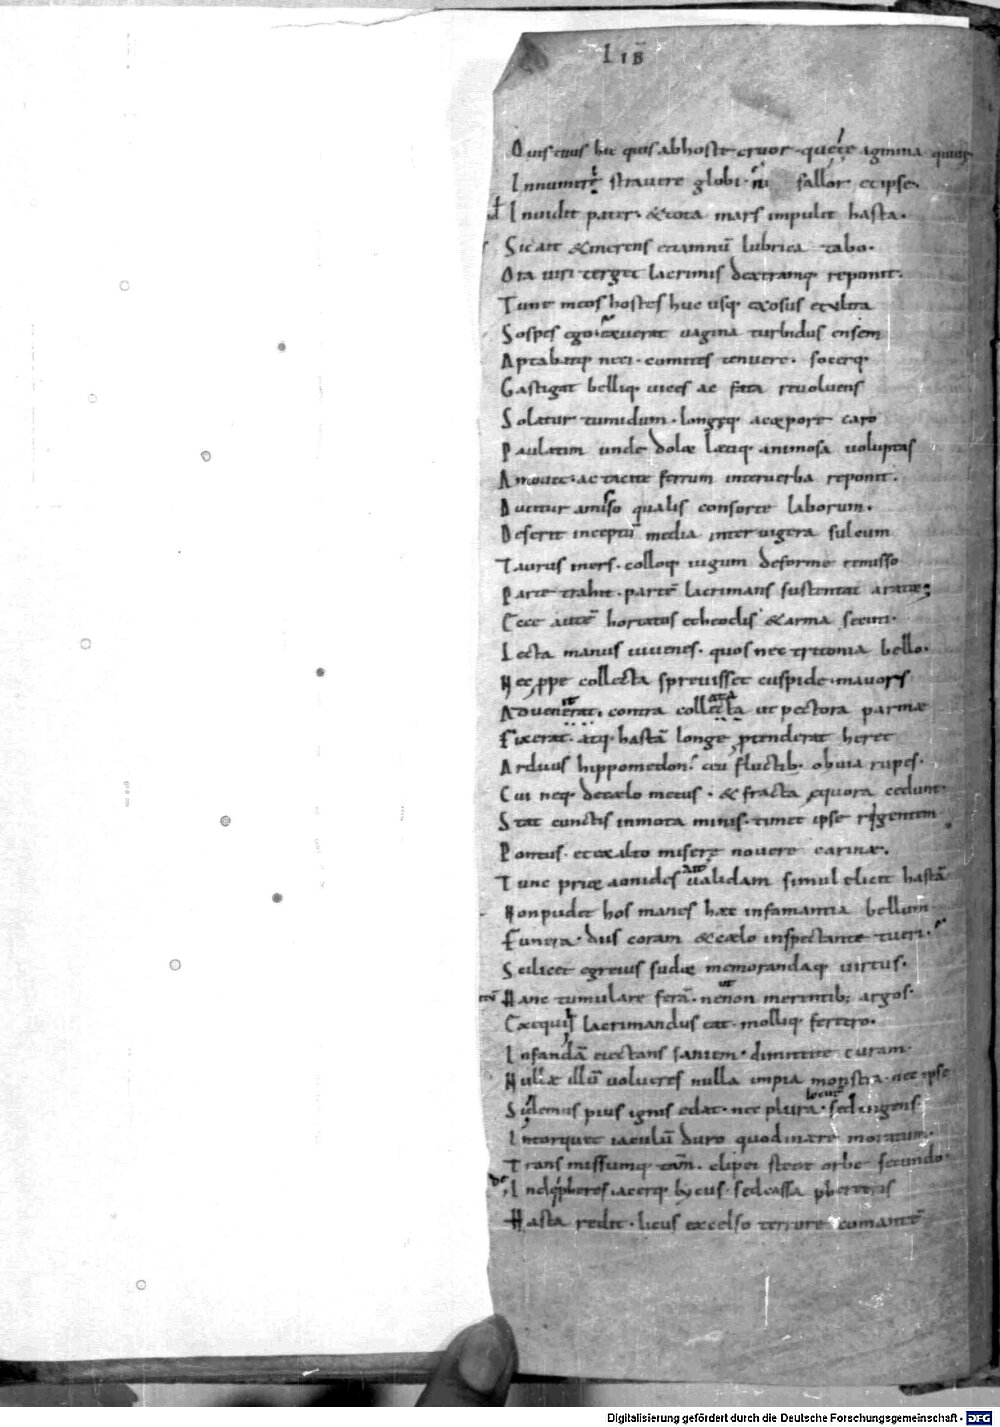 LIB̄
Quis tuus hic quis ab hoste cruor· quę te agmina quiue
Innumeri strauere globi· ni fallor· et ipse·
Inuidit pater· & tota mars impulit hasta·
Sic ait & merens etiamnū lubrica tabo·
Ora uiri terget lacrimis dextramq· reponit·
Tune meos hostes huc usq· exosus et ultra
Sospes ego· exuerat uagina turbidus ensem
Aptabatq· neci· comites tenuere· socerq·
Castigat belliq· uices ac fata reuoluens
Solatur tumidum· longeq· a corpore caro
Paulatim unde dolor lętiq· animosa uoluptas
Amouet· ac tacite ferrum inter uerba reponit·
Ducitur amisso qualis consorte laborum·
Deserit inceptū media inter iugera sulcum
Taurus iners· colloq· iugum deforme remisso
Parte trahit· partē lacrimans sustentat arator;
Ecce autē hortatus etheoclis & arma secuti·
Lecta manus iuuenes· quos nec tritonia bello·
Nec ꝓpe collecta spreuisset cuspide mauors
Aduenerat· contra collecta ut pectora parmae
Fixerat· atq· hastā longe ꝓtenderat heret
Arduus hippomedon· ceu fluctib· obuia rupes·
Cui neq· de cælo metus· & fracta ęquora cedunt·
Stat cunctis inmota minis· timet ipse rigentem
Pontus· et ex alto miserę nouere carinae·
Tunc prior aonides ualidam simul elicit hastā
Non pudet hos manes hæc infamantia bellum
Funera· dīis coram & cælo inspectante tueri·
Scilicet egreius sudor memorandaq· uirtus·
Hanc tumulare ferā· ne non merentib; argos·
Exequiis lacrimandus eat· molliq· feretro·
Infandā eiectans saniem· dimittite curam·
Nullae illū uolucres nulla impia monstra· nec ipse
Si demus pius ignis edat· nec plura· sed ingens
locus
Intorquet iaculū duro quod in ære moratum·
Transmissumq· tam̄· clipei stetit orbe secundo·
Inde pheres acerq· lycus· sed cassa pheretis
Hasta redit· licus excelso terrore comantē
Digitalisierung gefördert durch die Deutsche Forschungsgemeinschaft - DFG